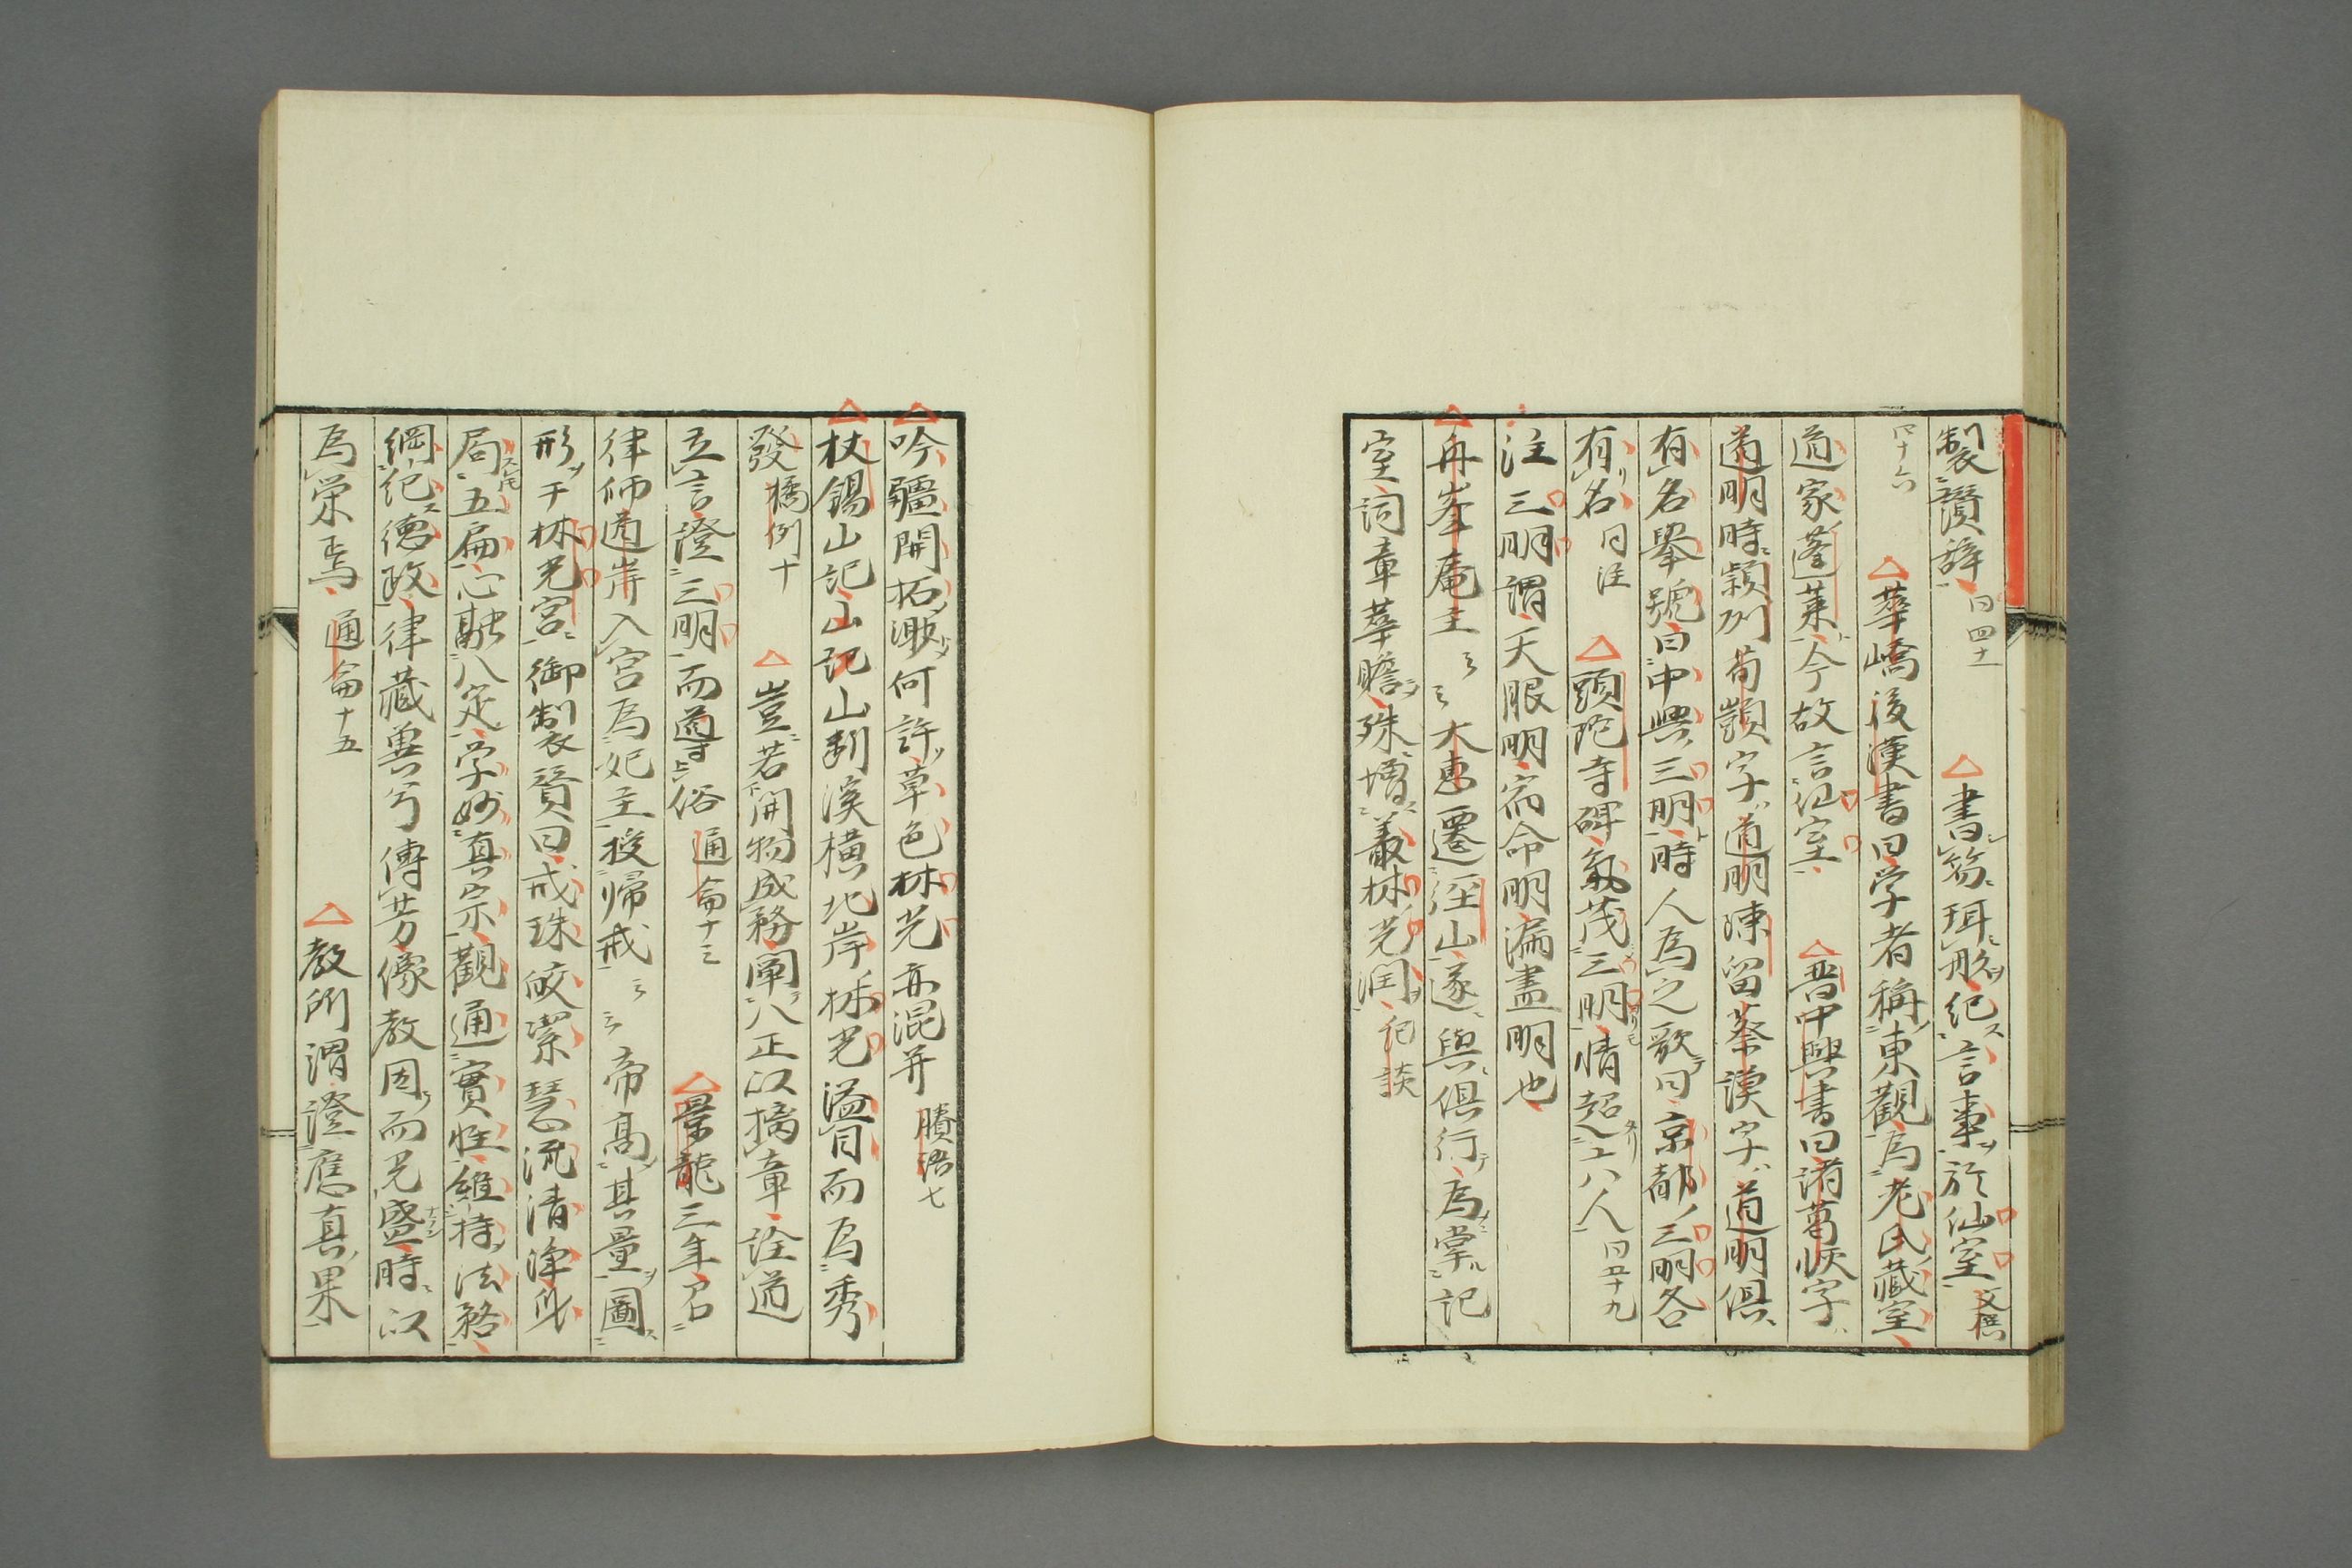 製讃辞 同四十 △書笏珥彤紀言事於仙室 文撰
四十六 △華嶠後漢書曰学者稱東觀為老氏藏室
道家蓬莱今故言仙室 △晋中興書曰諸葛恢字
道明時潁川荀顗字道明陳留蔡謨字道明俱
有名譽號曰中興三明時人為之歌曰京都三明各
有名 同注 △頭陀寺碑氣茂三明情超六八人 同五十九
注三明謂天眼明宿命明漏盡明也
△舟峯庵主 云云 大恵遷径山遂與俱行為掌記
室詞章華贍殊増叢林光潤 紀談
△吟疆開拓渺何許草色林光亦混并 賸語七
△杖錫山記山記山剬溪横北岸林光溢目而為秀
發 橘例十 △豈若開物成務闡八正以摛章詮道
立言澄三明而導俗 通侖十三 △景龍三年召
律師道岸入宮為妃主授帰戒 云云 帝高其量圖
形于林光宮御製賛曰戒珠皎潔慧流清浄身
局五扁心融八定学妙真宗觀通實性維持法務
綱紀徳政律藏冀兮傳芳像教因而光盛時以
為栄焉 通侖十五 △教所謂澄應真果